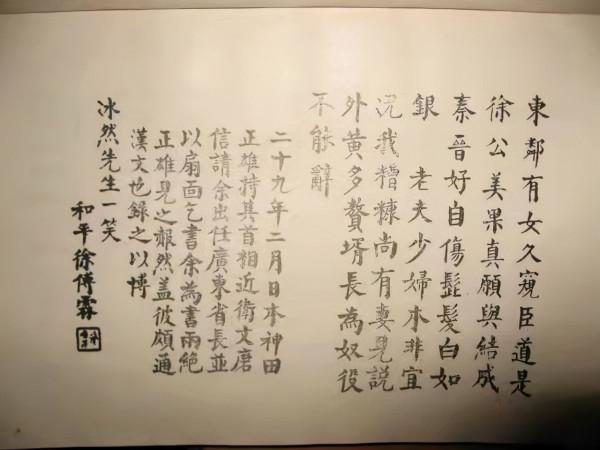 東鄰有女久窺臣道是
徐公美果真願與結成
秦晉好自傷髭髮白如
銀　老夫少婦本非宜
況我糟糠尚有妻見說
外黃多贅壻長為奴役
不能辭
二十九年二月日本神田
正雄持其首相近衛文磨
信請余出任廣東省長並
以扇面乞書余為書兩絕
正雄見之赧然盖彼頗通
漢文也錄之以博
冰然先生一笑
和平徐傅霖